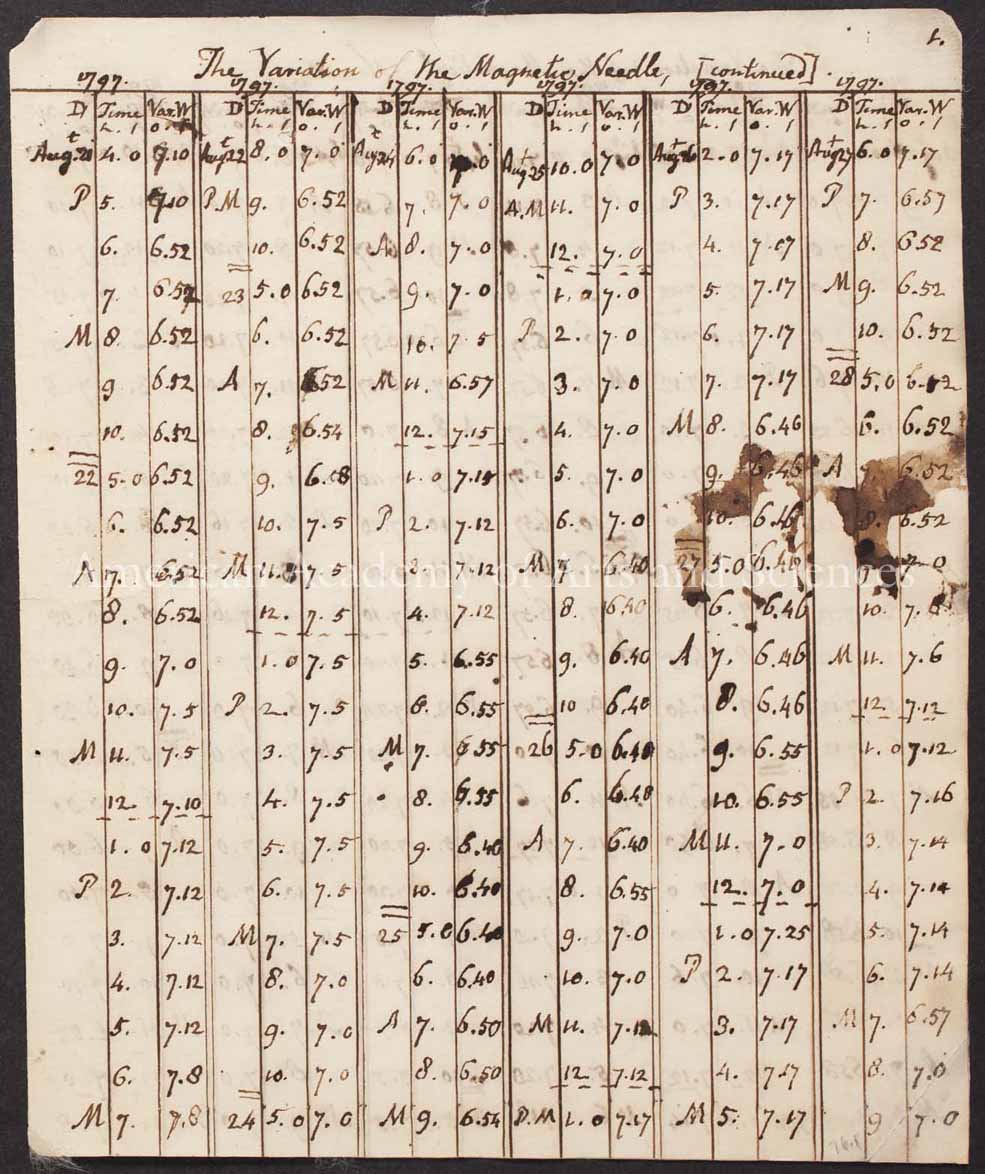 1.
The Variation of the Magnetic Needle, [continued].
1797. 1797. 1797. 1797. 1797. 1797.
D Time Var.W D Time Var.W D Time Var.W D Time Var.W D Time Var.W D Time Var.W
h. ' o ' h. ' o. ' h. ' o. ' h. ' o. ' h. ' o. ' h. ' o. '
Augt 4.0 7.10 Augt22 8.0 7.0 Augt24 6.0 7.0 Augt25 10.0 7.0 Augt26 2.0 7.17 Augt27 6.0 7.17
P 5. 7.10 P.M 9. 6.52 7. 7.0 A.M 11. 7.0 P 3. 7.17 P 7. 6.57
6. 6.52 10. 6.52 A 8. 7.0 12. 7.0 4. 7.17 8. 6.52
7. 6.52 23 5.0 6.52 9. 7.0 1.0 7.0 5. 7.17 M 9. 6.52
M 8. 6.52 6. 6.52 10. 7.5 P 2. 7.0 6. 7.17 10. 6.52
9 6.52 A 7. 6.52 M 11. 6.57 3. 7.0 7. 7.17 28 5.0 6.52
10. 6.52 8. 6.54 12. 7.15 4. 7.0 M 8. 6.46 6. 6.52
22 5.0 6.52 9. 6.58 1.0 7.15 5. 7.0 9. 6.46 A 7. 6.52
6. 6.52 10. 7.5 P 2. 7.12 6. 7.0 10. 6.46 8. 6.52
A 7. 6.52 M 11. 7.5 3. 7.12 M 7. 6.40 27 5.0 6.46 7.0
8. 6.52 12. 7.5 4. 7.12 8. 6.40 6. 6.46 10. 7.
9. 7.0 1.0 7.5 5. 6.55 9. 6.40 A 7. 6.46 M 11. 7.6
10. 7.5 P 2. 7.5 6. 6.55 10 6.40 8. 6.46 12. 7.12
M 11. 7.5 3. 7.5 M 7. 6.55 26 5.0 6.40 9. 6.55 1.0 7.12
12. 7.10 4. 7.5 8. 6.55 6. 6.40 10. 6.55 P 2. 7.16
1.0 7.12 5. 7.5 9. 6.40 A 7. 6.40 M 11. 7.0 3. 7.14
P 2. 7.12 6. 7.5 10. 6.40 8. 6.55 12. 7.0 4. 7.14
3. 7.12 M 7. 7.5 25 5.0 6.40 9. 7.0 1.0 7.25 5. 7.14
4. 7.12 8. 7.0 6. 6.40 10. 7.0 P 2. 7.17 6. 7.14
5. 7.12 9. 7.0 A 7. 6.50 M 11. 7.12 3. 7.17 M 7. 6.57
6. 7.8 10. 7.0 8. 6.50 12. 7.12 4. 7.17 8. 7.0
M 7. 7.8 24 5.0 7.0 M 9. 6.54 P.M 1.0 7.17 M 5. 7.17 9 7.0
American Academy of Arts and Sciences